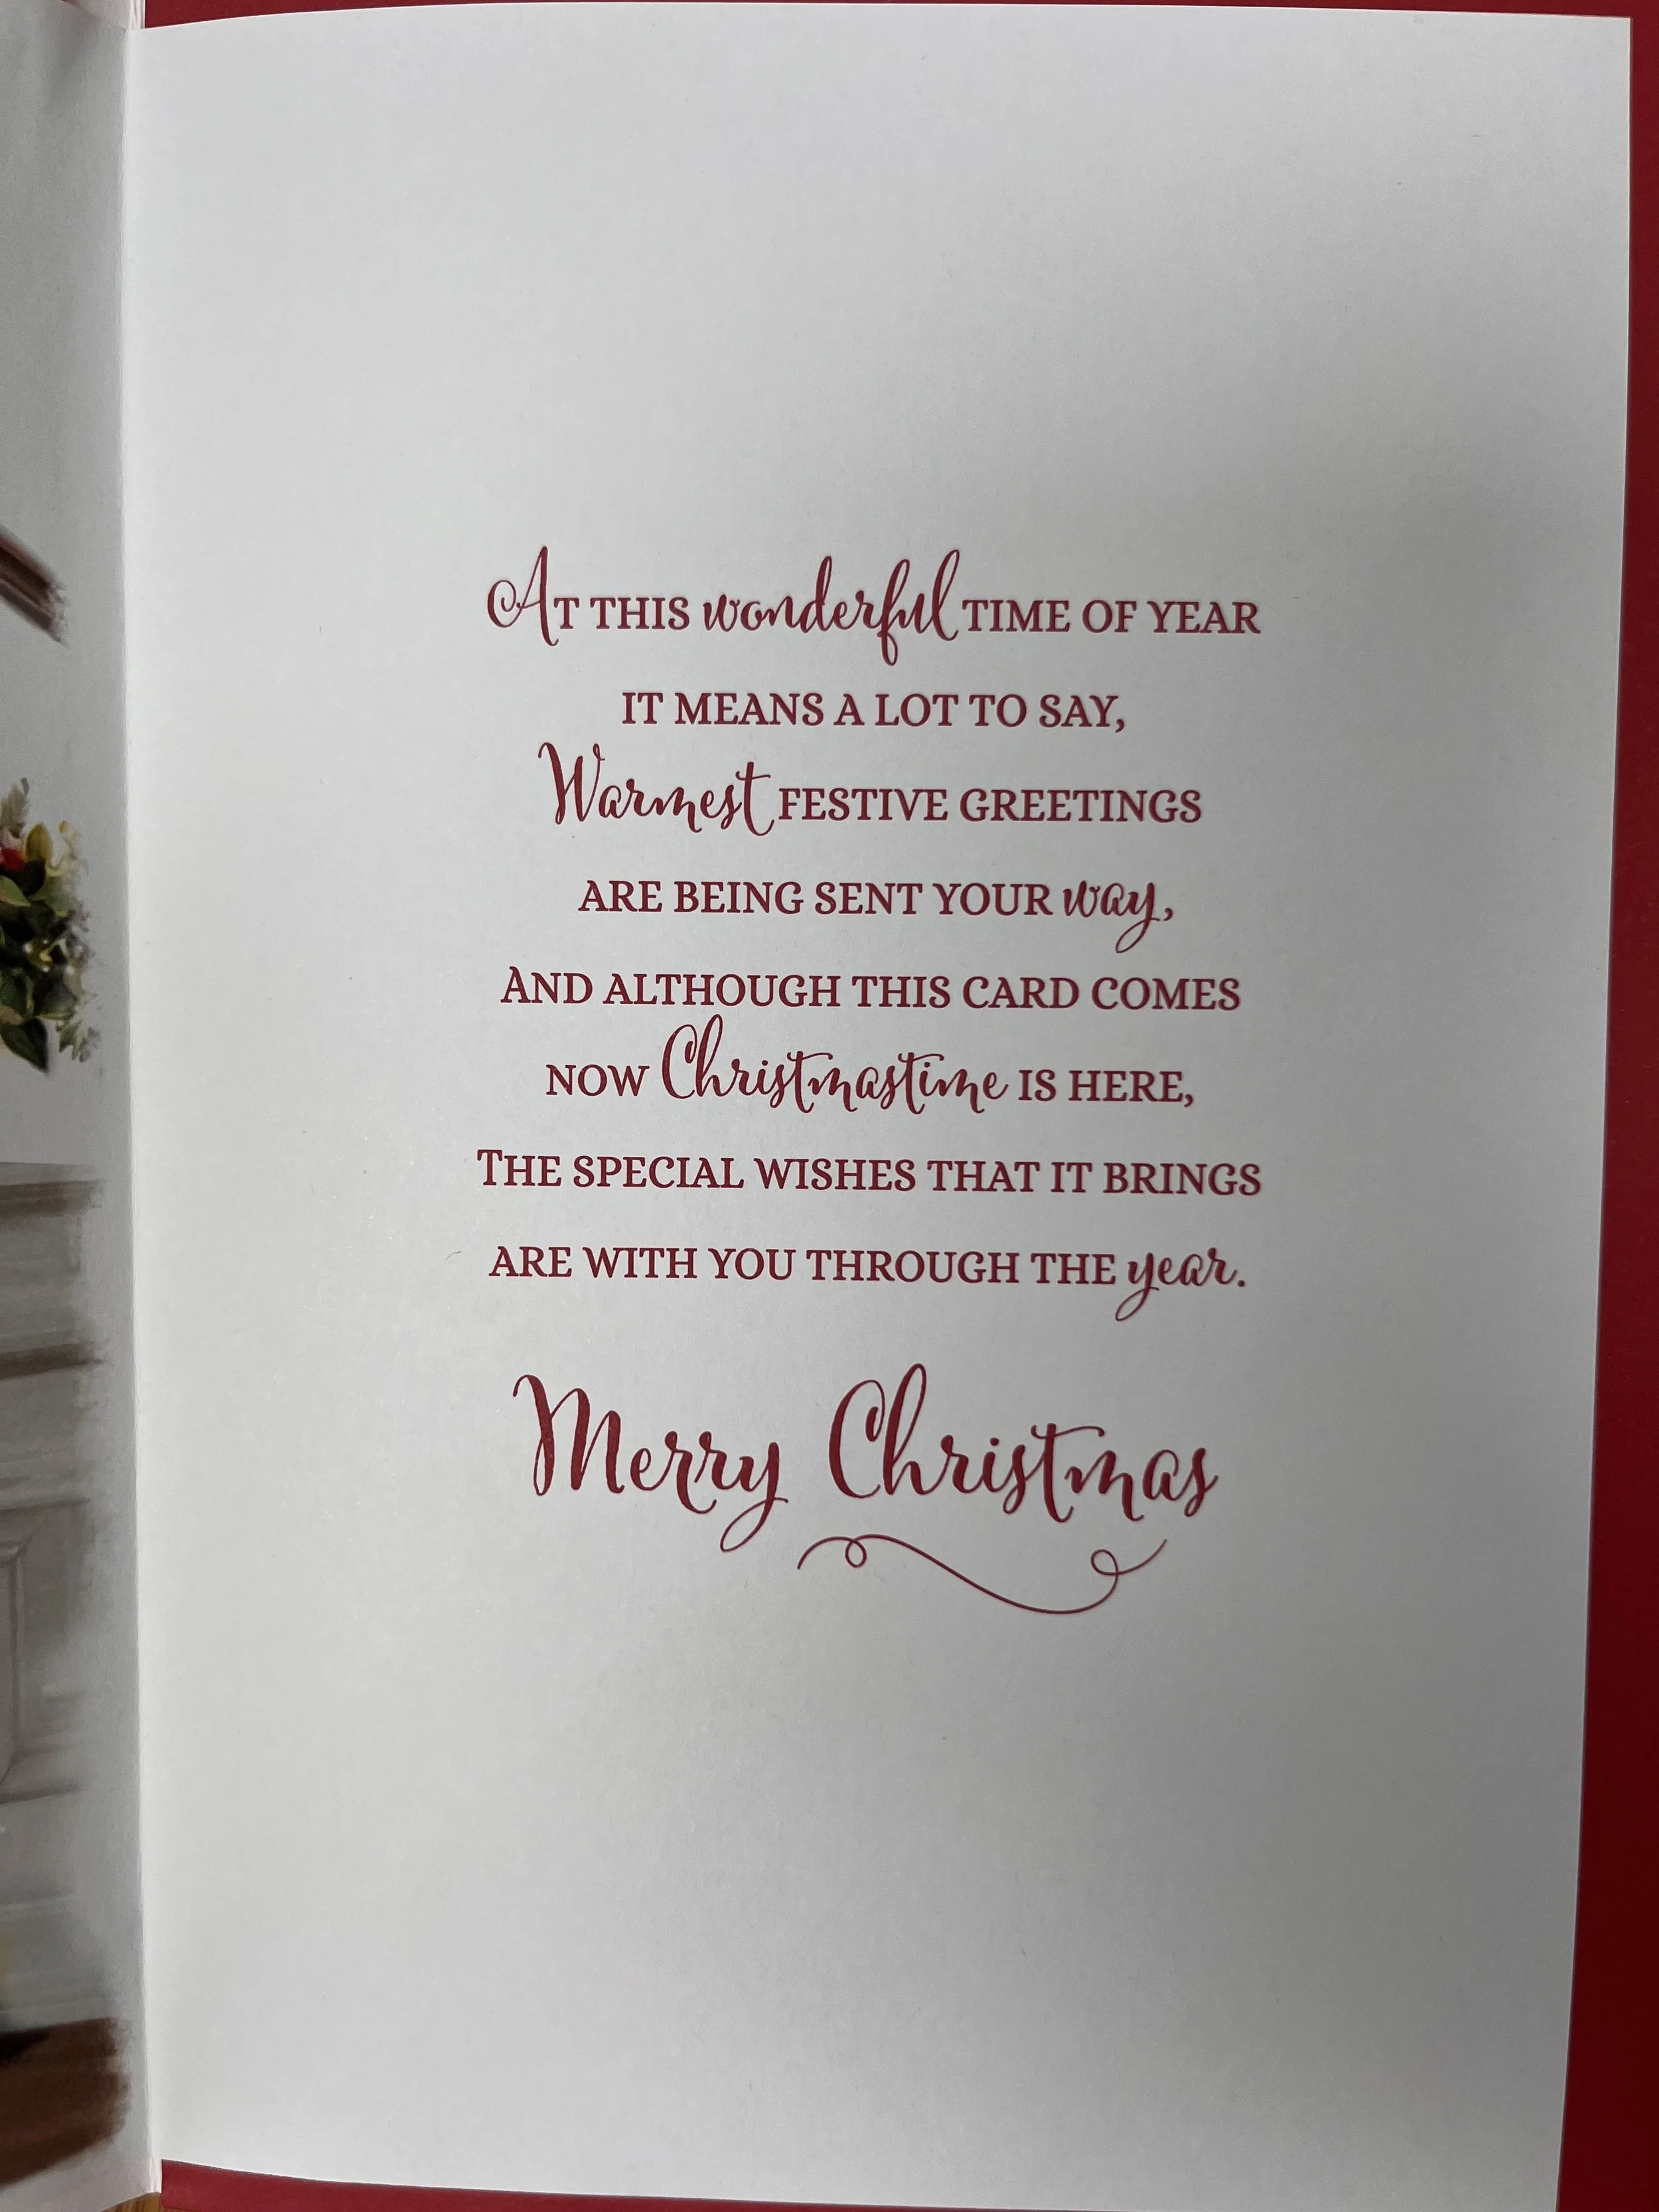 At this wonderful time of year
it means a lot to say,
Warmest festive greetings
are being sent your way,
And although this card comes
now Christmastime is here,
The special wishes that it brings
are with you through the year.
Merry Christmas